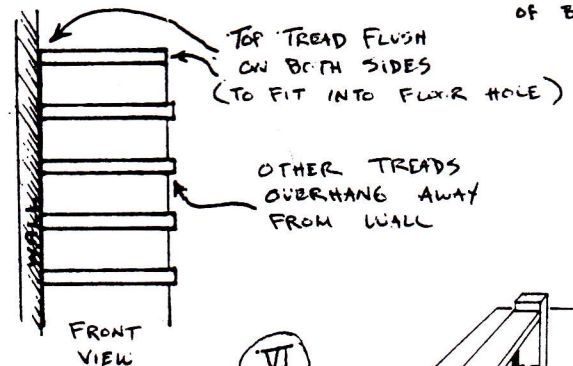 OF
TOP TREAD FLUSH
ON BOTH SIDES
(TO FIT INTO FLOOR HOLE)
OTHER TREADS
OVERHANG AWAY
FROM WALL
WALL
FRONT
VIEW
VI